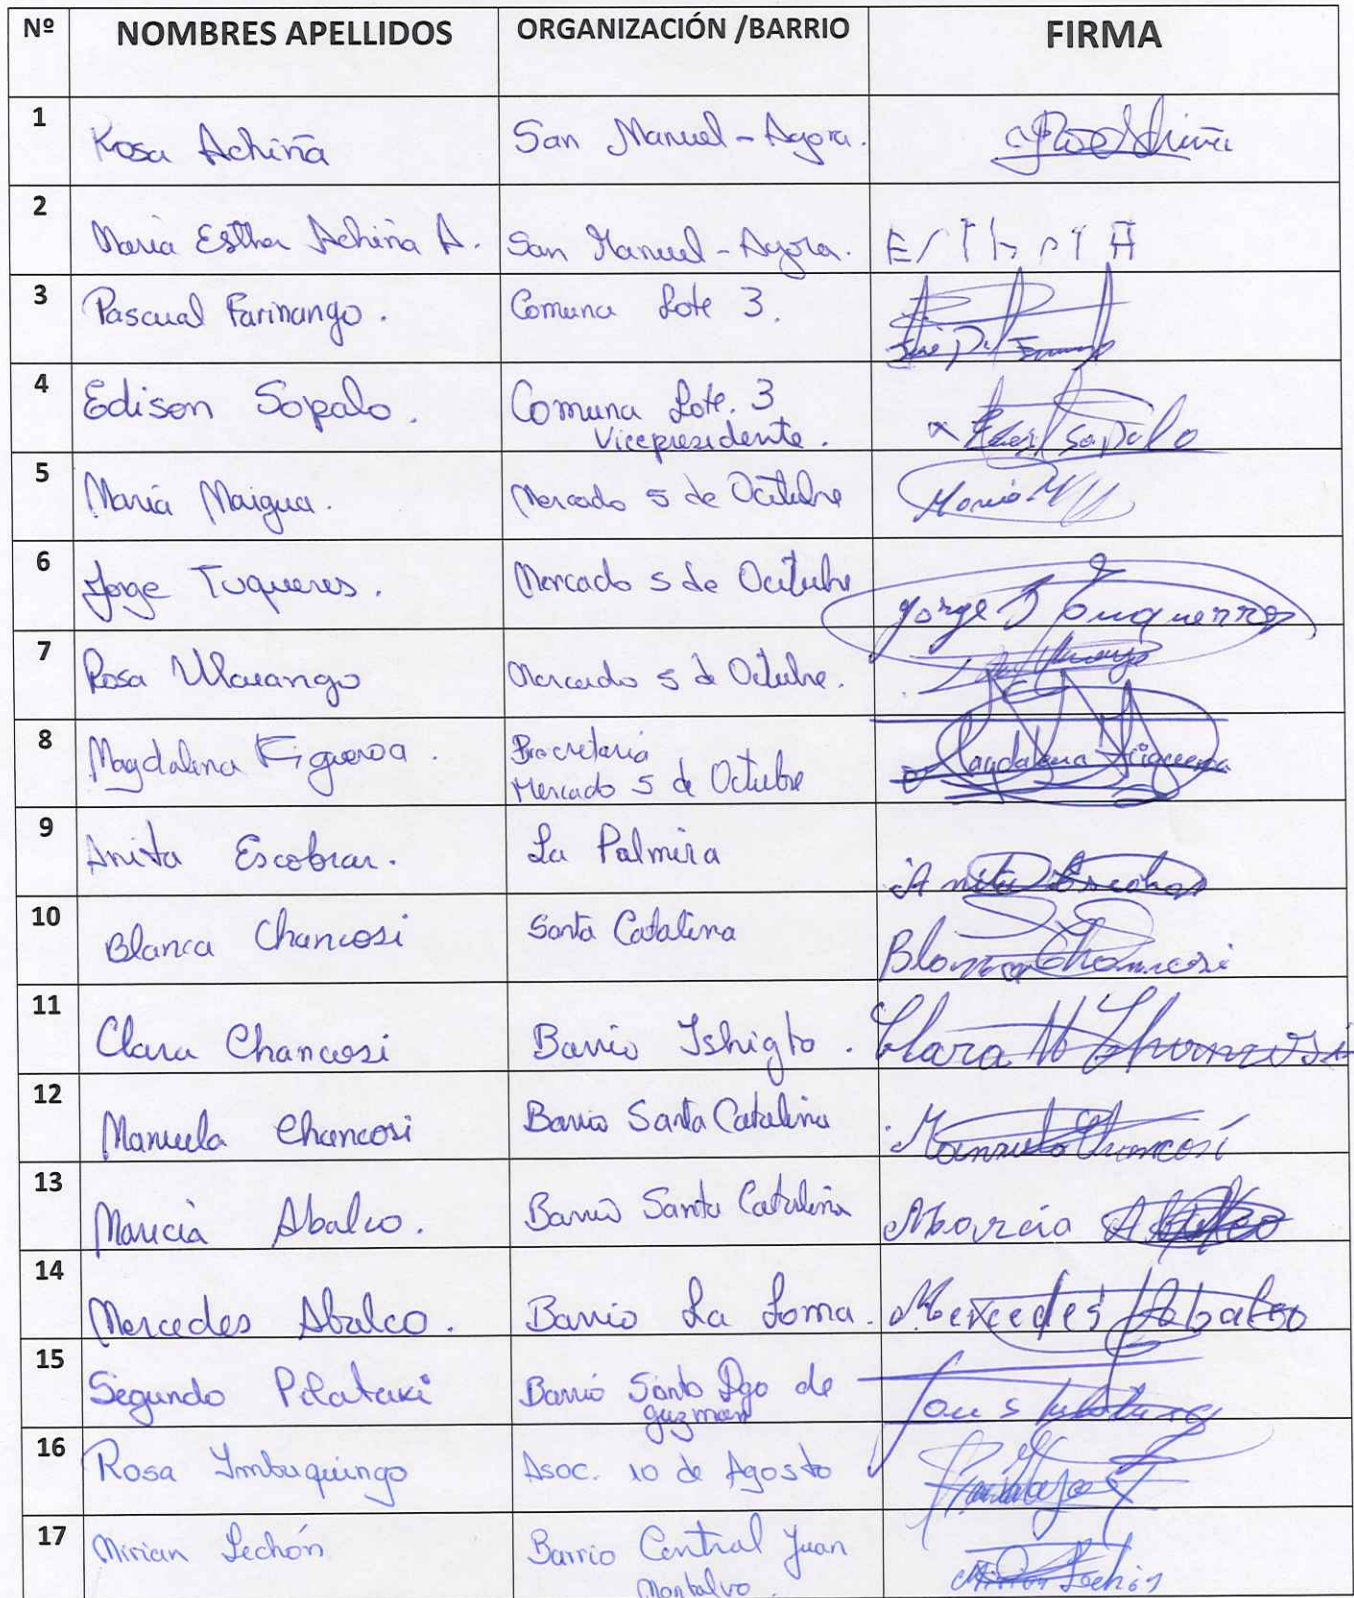 Nº NOMBRES APELLIDOS ORGANIZACIÓN /BARRIO FIRMA
1 Rosa Achiña San Manuel - Ayora.
2 Maria Esther Achiña A. San Manuel - Ayora.
3 Pascual Farinango. Comuna Lote 3.
4 Edison Sopalo. Comuna Lote. 3
Vicepresidente.
5 María Maigua. Mercado 5 de Octubre Maria M
6 Jorge Tuqueres. Mercado 5 de Octubre Jorge
7 Rosa Mercado 5 de Octubre.
8 Magdalena Figueroa. Mercado 5 de Octubre Magdalena Figueroa
9 Anita Escobar. La Palmira Anita Escobar
10 Blanca Chancosi Santa Catalina Blanca Chancosi
11 Clara Chancosi Barrio Ishigto. Clara M Chancosi
12 Manuela Chancosi Barrio Santa Catalina Manuela Chancosí
13 Marcia Abalco. Barrio Santa Catalina Marcia Abalco
14 Mercedes Abalco. Barrio La Loma. Mercedes Abalco
15 Segundo Barrio Santo Dgo de
guzman
16 Rosa Imbaquingo Asoc. 10 de Agosto
17 Mirian Lechón Barrio Central Juan
Montalvo. Mirian Lechón